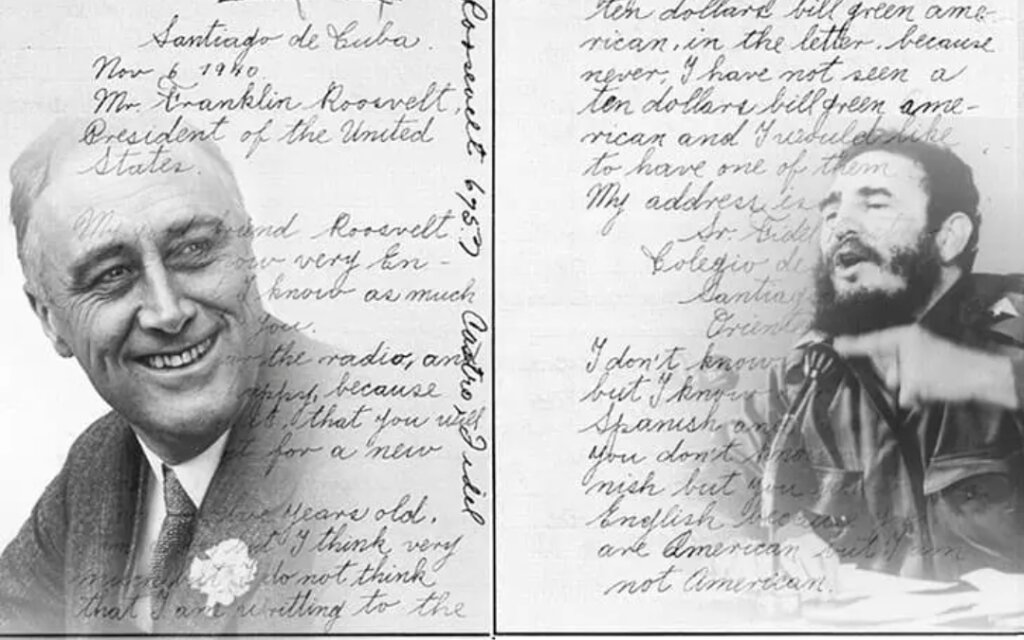 Santiago de Cuba.
Nov 6 1940.
Mr. Franklin Roosvelt,
President of the United
States.
My friend Roosvelt
very En-
I know as much
you.
the radio, an
because
that you will
for a new
years old.
I think very
do not think
that I am writting to the
Roosevelt 6957 Castro, Fidel
ten dollars bill green ame-
rican, in the letter, because
never, I have not seen a
ten dollars bill green ame-
rican and I would like
to have one of them
My address is
Sr. Fidel
Colegio de
Santiag
Orient
I don't know
but I know
Spanish and
you don't kno
nish but you
English because
are American but I am
not American.